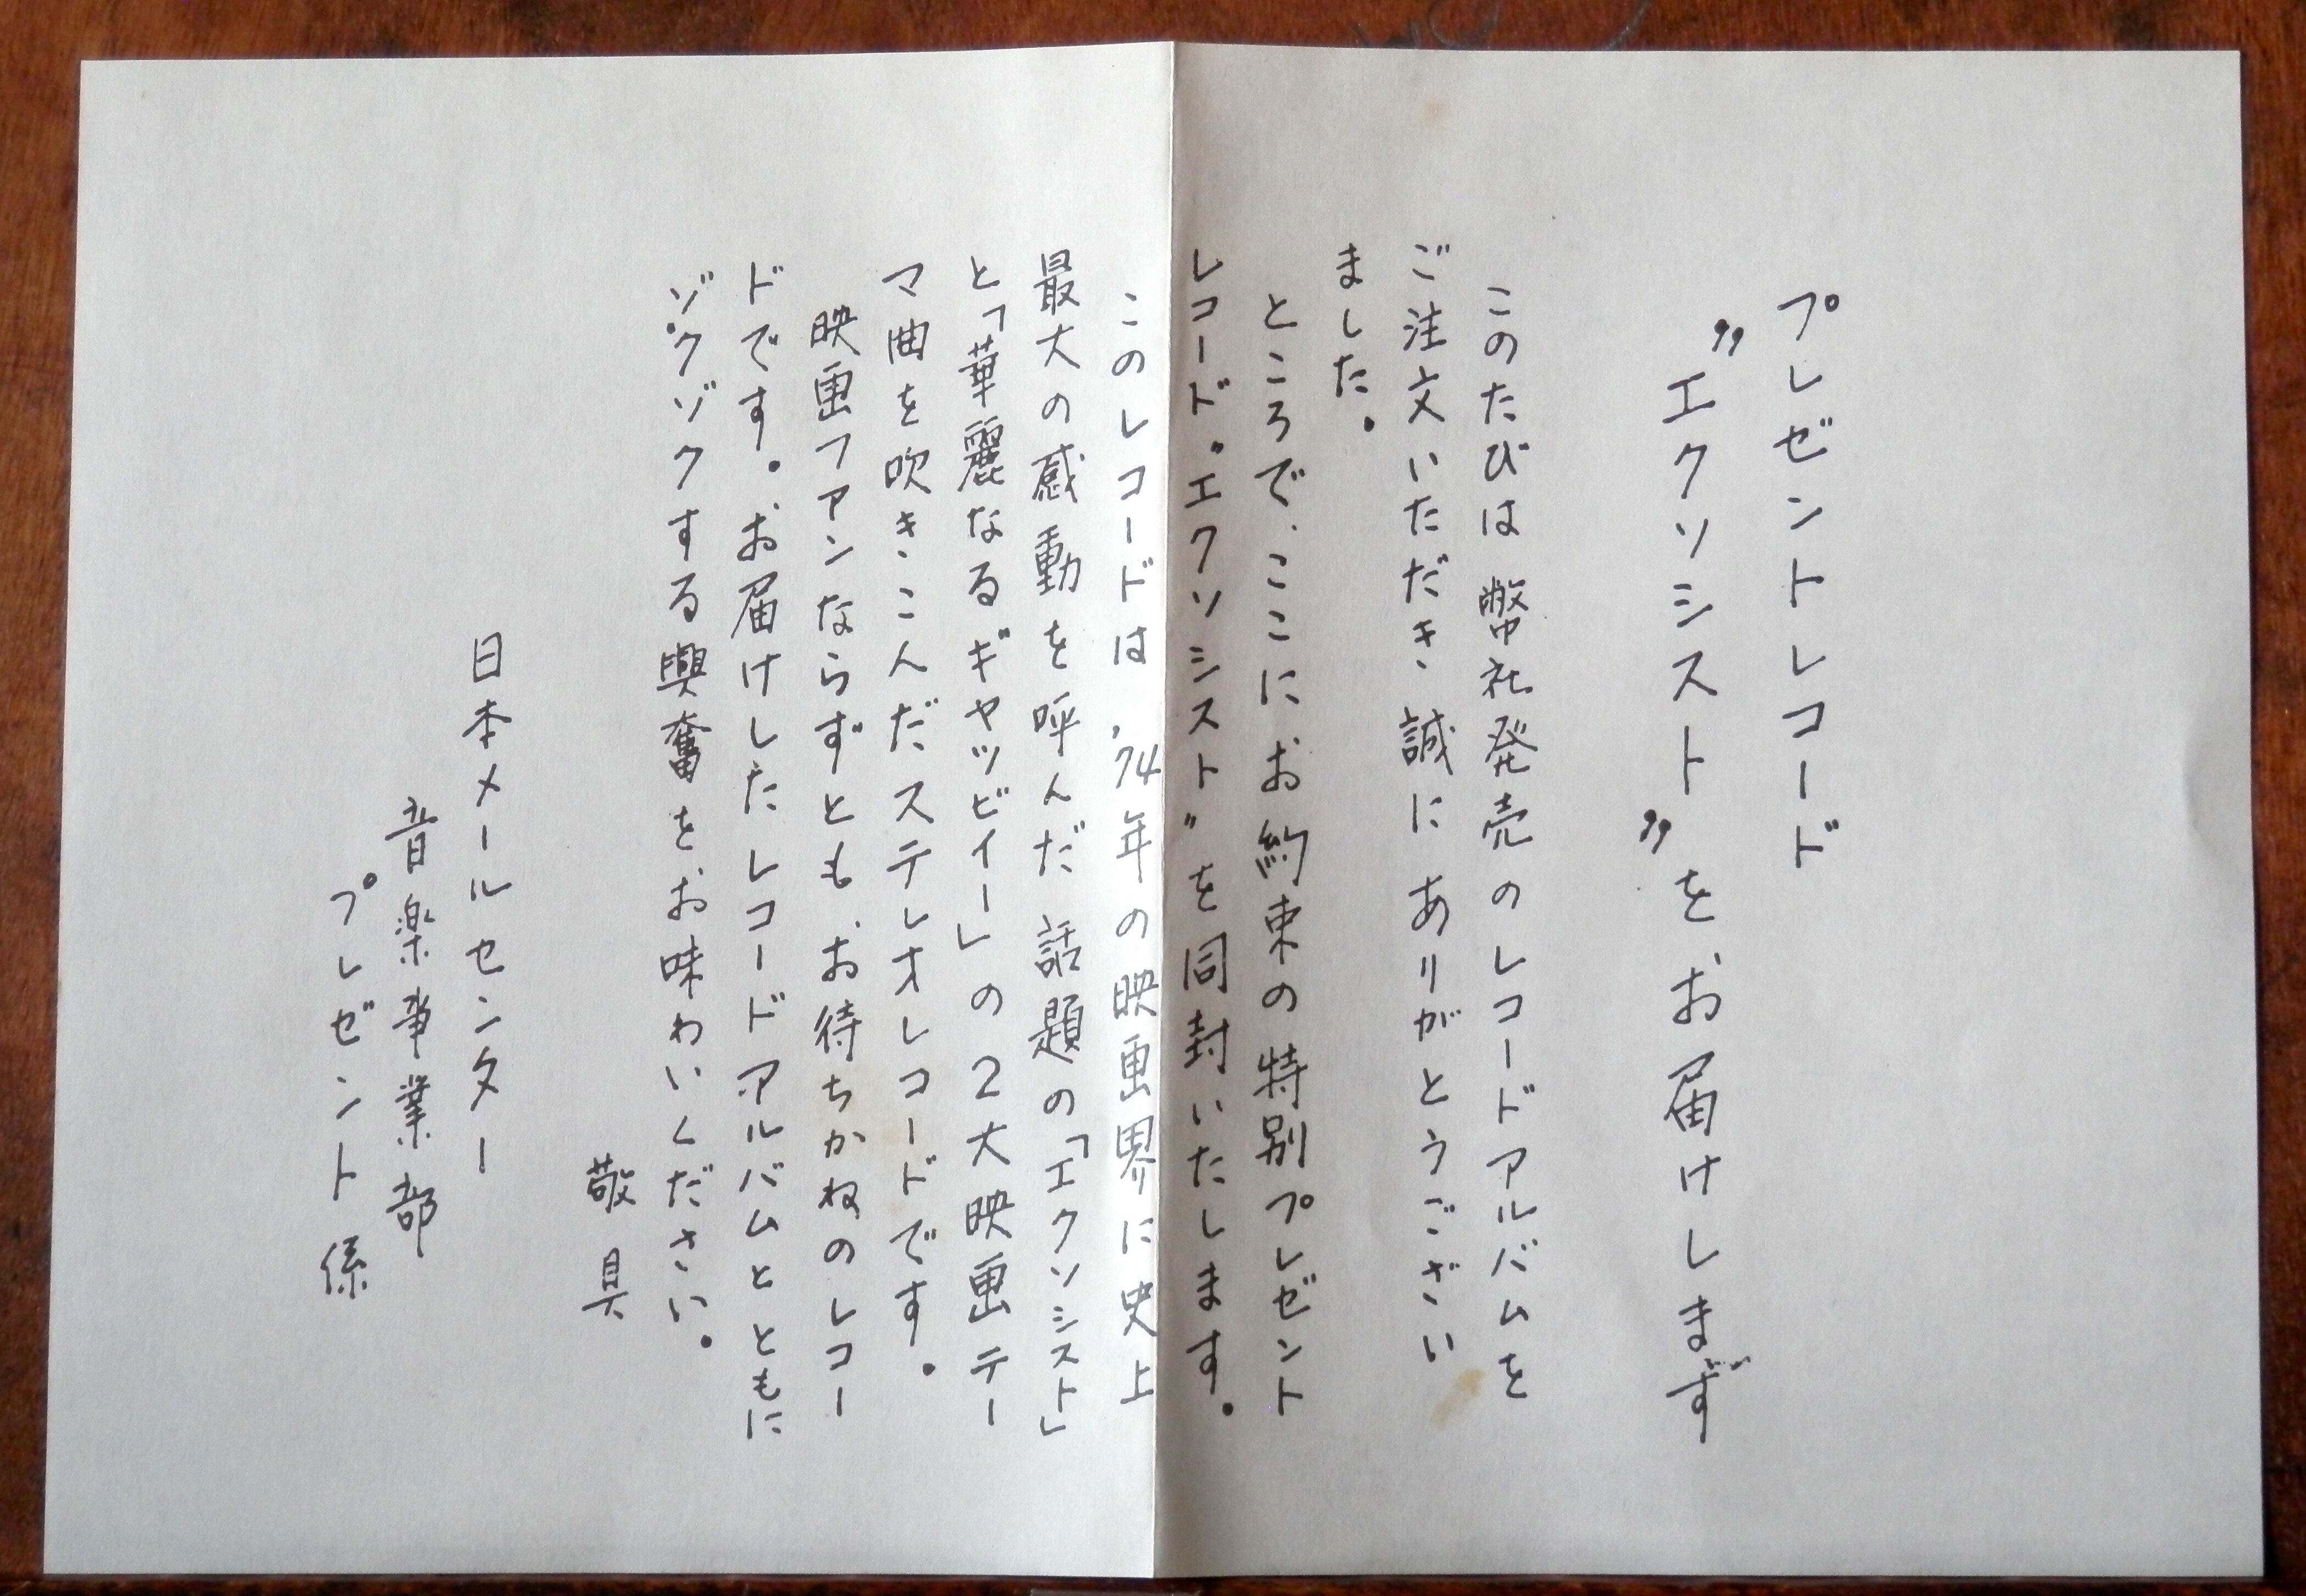 プレゼントレコード
〝エクソシスト〟を、お届けします
このたびは 弊社発売のレコードアルバムを
ご注文いただき 誠に ありがとうござい
ました。
ところで、ここにお約束の特別プレゼント
レコード〝エクソシスト〟を同封いたします。
このレコードは '74年の映画界に史上
最大の感動を呼んだ 話題の「エクソシスト」
と「華麗なるギャッビイー」の2大映画テー
マ曲を吹きこんだステレオレコードです。
映画ファンならずとも、お待ちかねのレコー
ドです。お届けしたレコードアルバムとともに
ゾクゾクする興奮を、お味わいください。
敬具
日本メールセンター
音楽事業部
プレゼント係